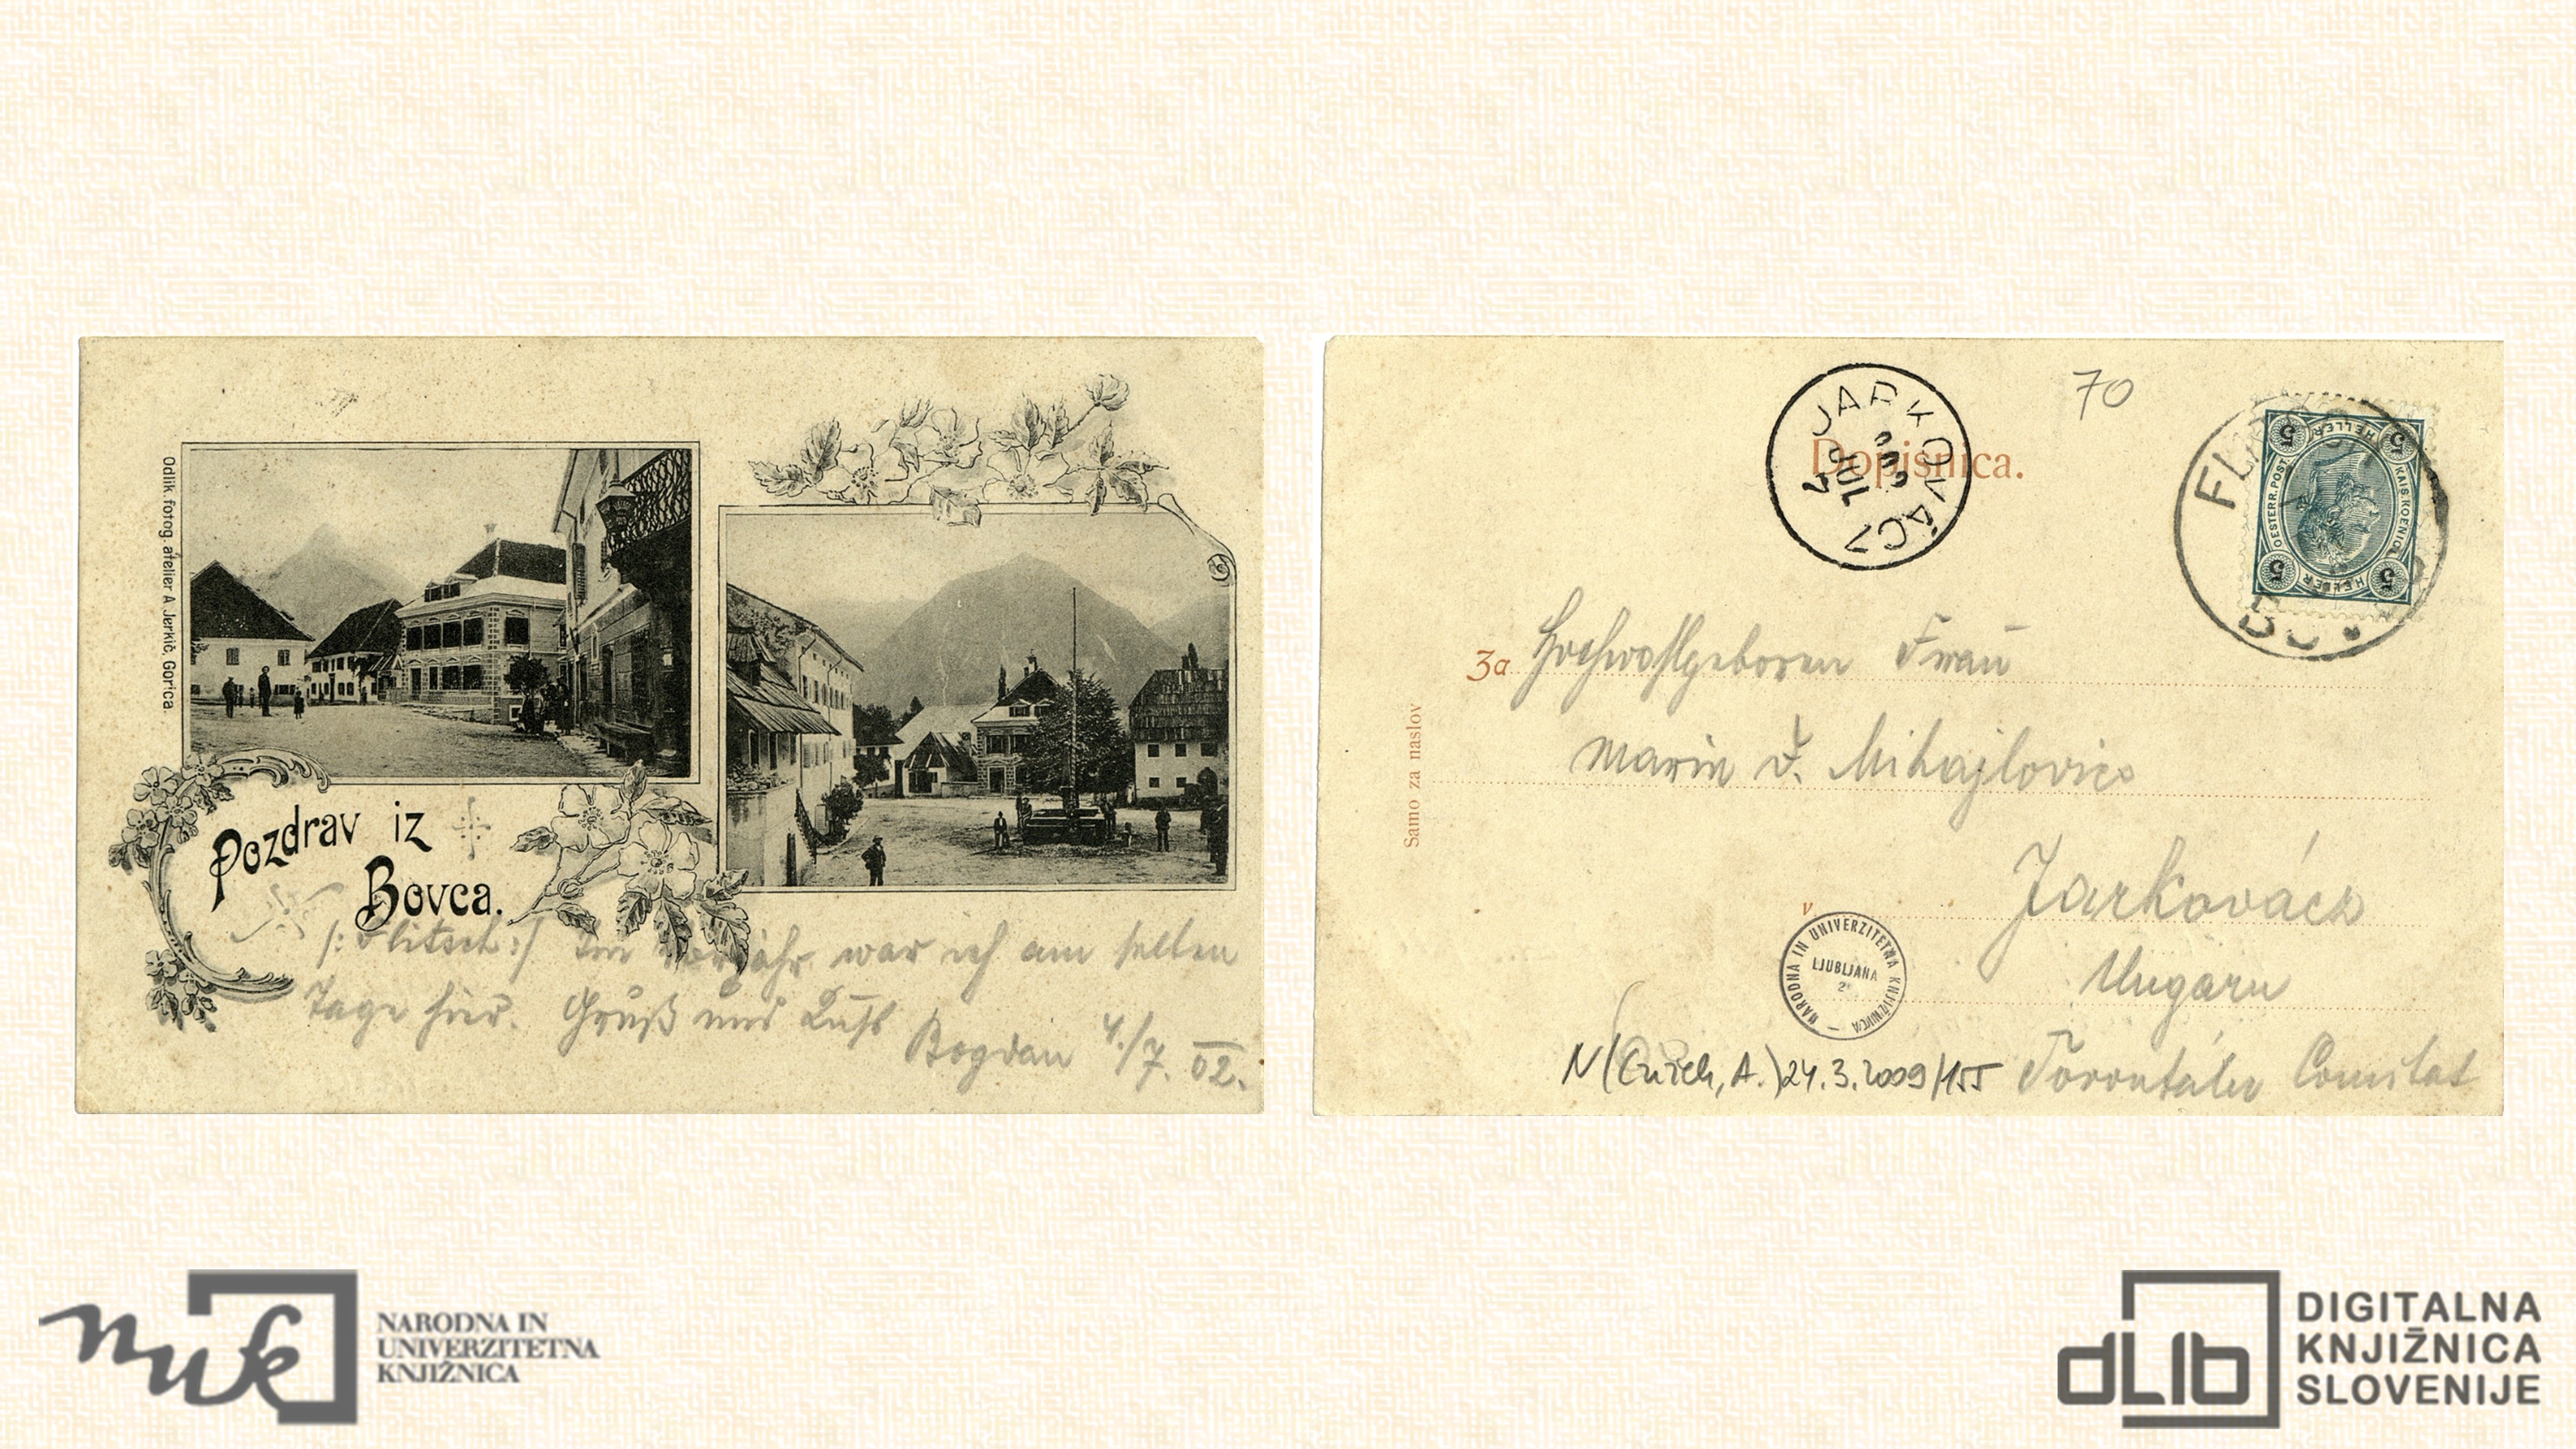 Odlik. fotog. atelier A. Jerkič, Gorica.
Pozdrav iz
Bovca.
/: Flitsch :/ Im Vorjahr war ich am selben
Tage hier. Gruß und Kuß
Bogdan 4./7. 02.
JARKOVÁCZ
70
Dopisnica.
5 HELLER 5
OESTERR. POST
KAIS. KOENIGL.
5 HELLER 5
Za Hochwohlgeboren Frau
Marie v. Mihajlovics
Samo za naslov
Jarkovácz
v
NARODNA IN UNIVERZITETNA KNJIŽNICA
LJUBLJANA
Ungarn
N( A.)24.3.2009/155
Torontáler Comitat
nuk
NARODNA IN
UNIVERZITETNA
KNJIŽNICA
dLib
DIGITALNA
KNJIŽNICA
SLOVENIJE